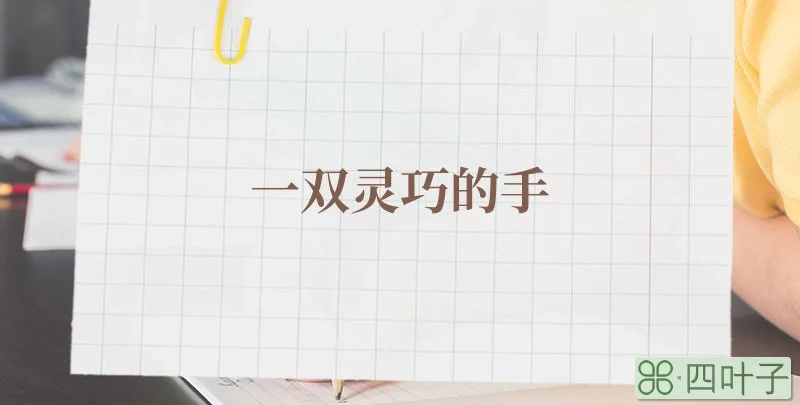 一双灵巧的手
四叶子